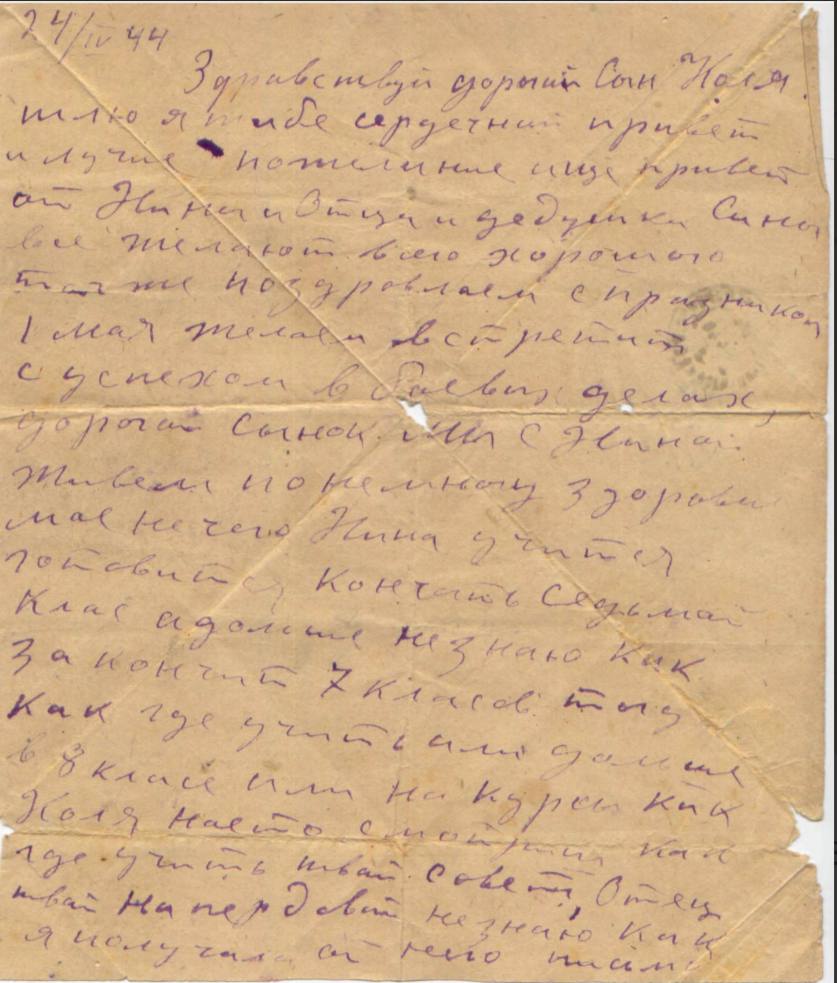 24/IV 44
Здравствуй дорогой Сын Коля.
шлю я тибе сердечный привет
и лучие пожелиние ище привет
от Нины и Отца и дедушки Сины
все желают всего хорошого
так же поздровляем с празником
1 мая желаем встретить
с успехом в боевых делах,
дорогой сынок мы с Ниной
живем понемногу здоровье
мое нечего Нина учится
готовится кончать седьмой
Клас а дольше незнаю как
закончит 7 класов тогд
как где учить или дольше
в 8 класе или на курсы как
Коля насто смотриш как
где учить твой совет, Отец
твой на передовой незнаю как
я получала от него письмо